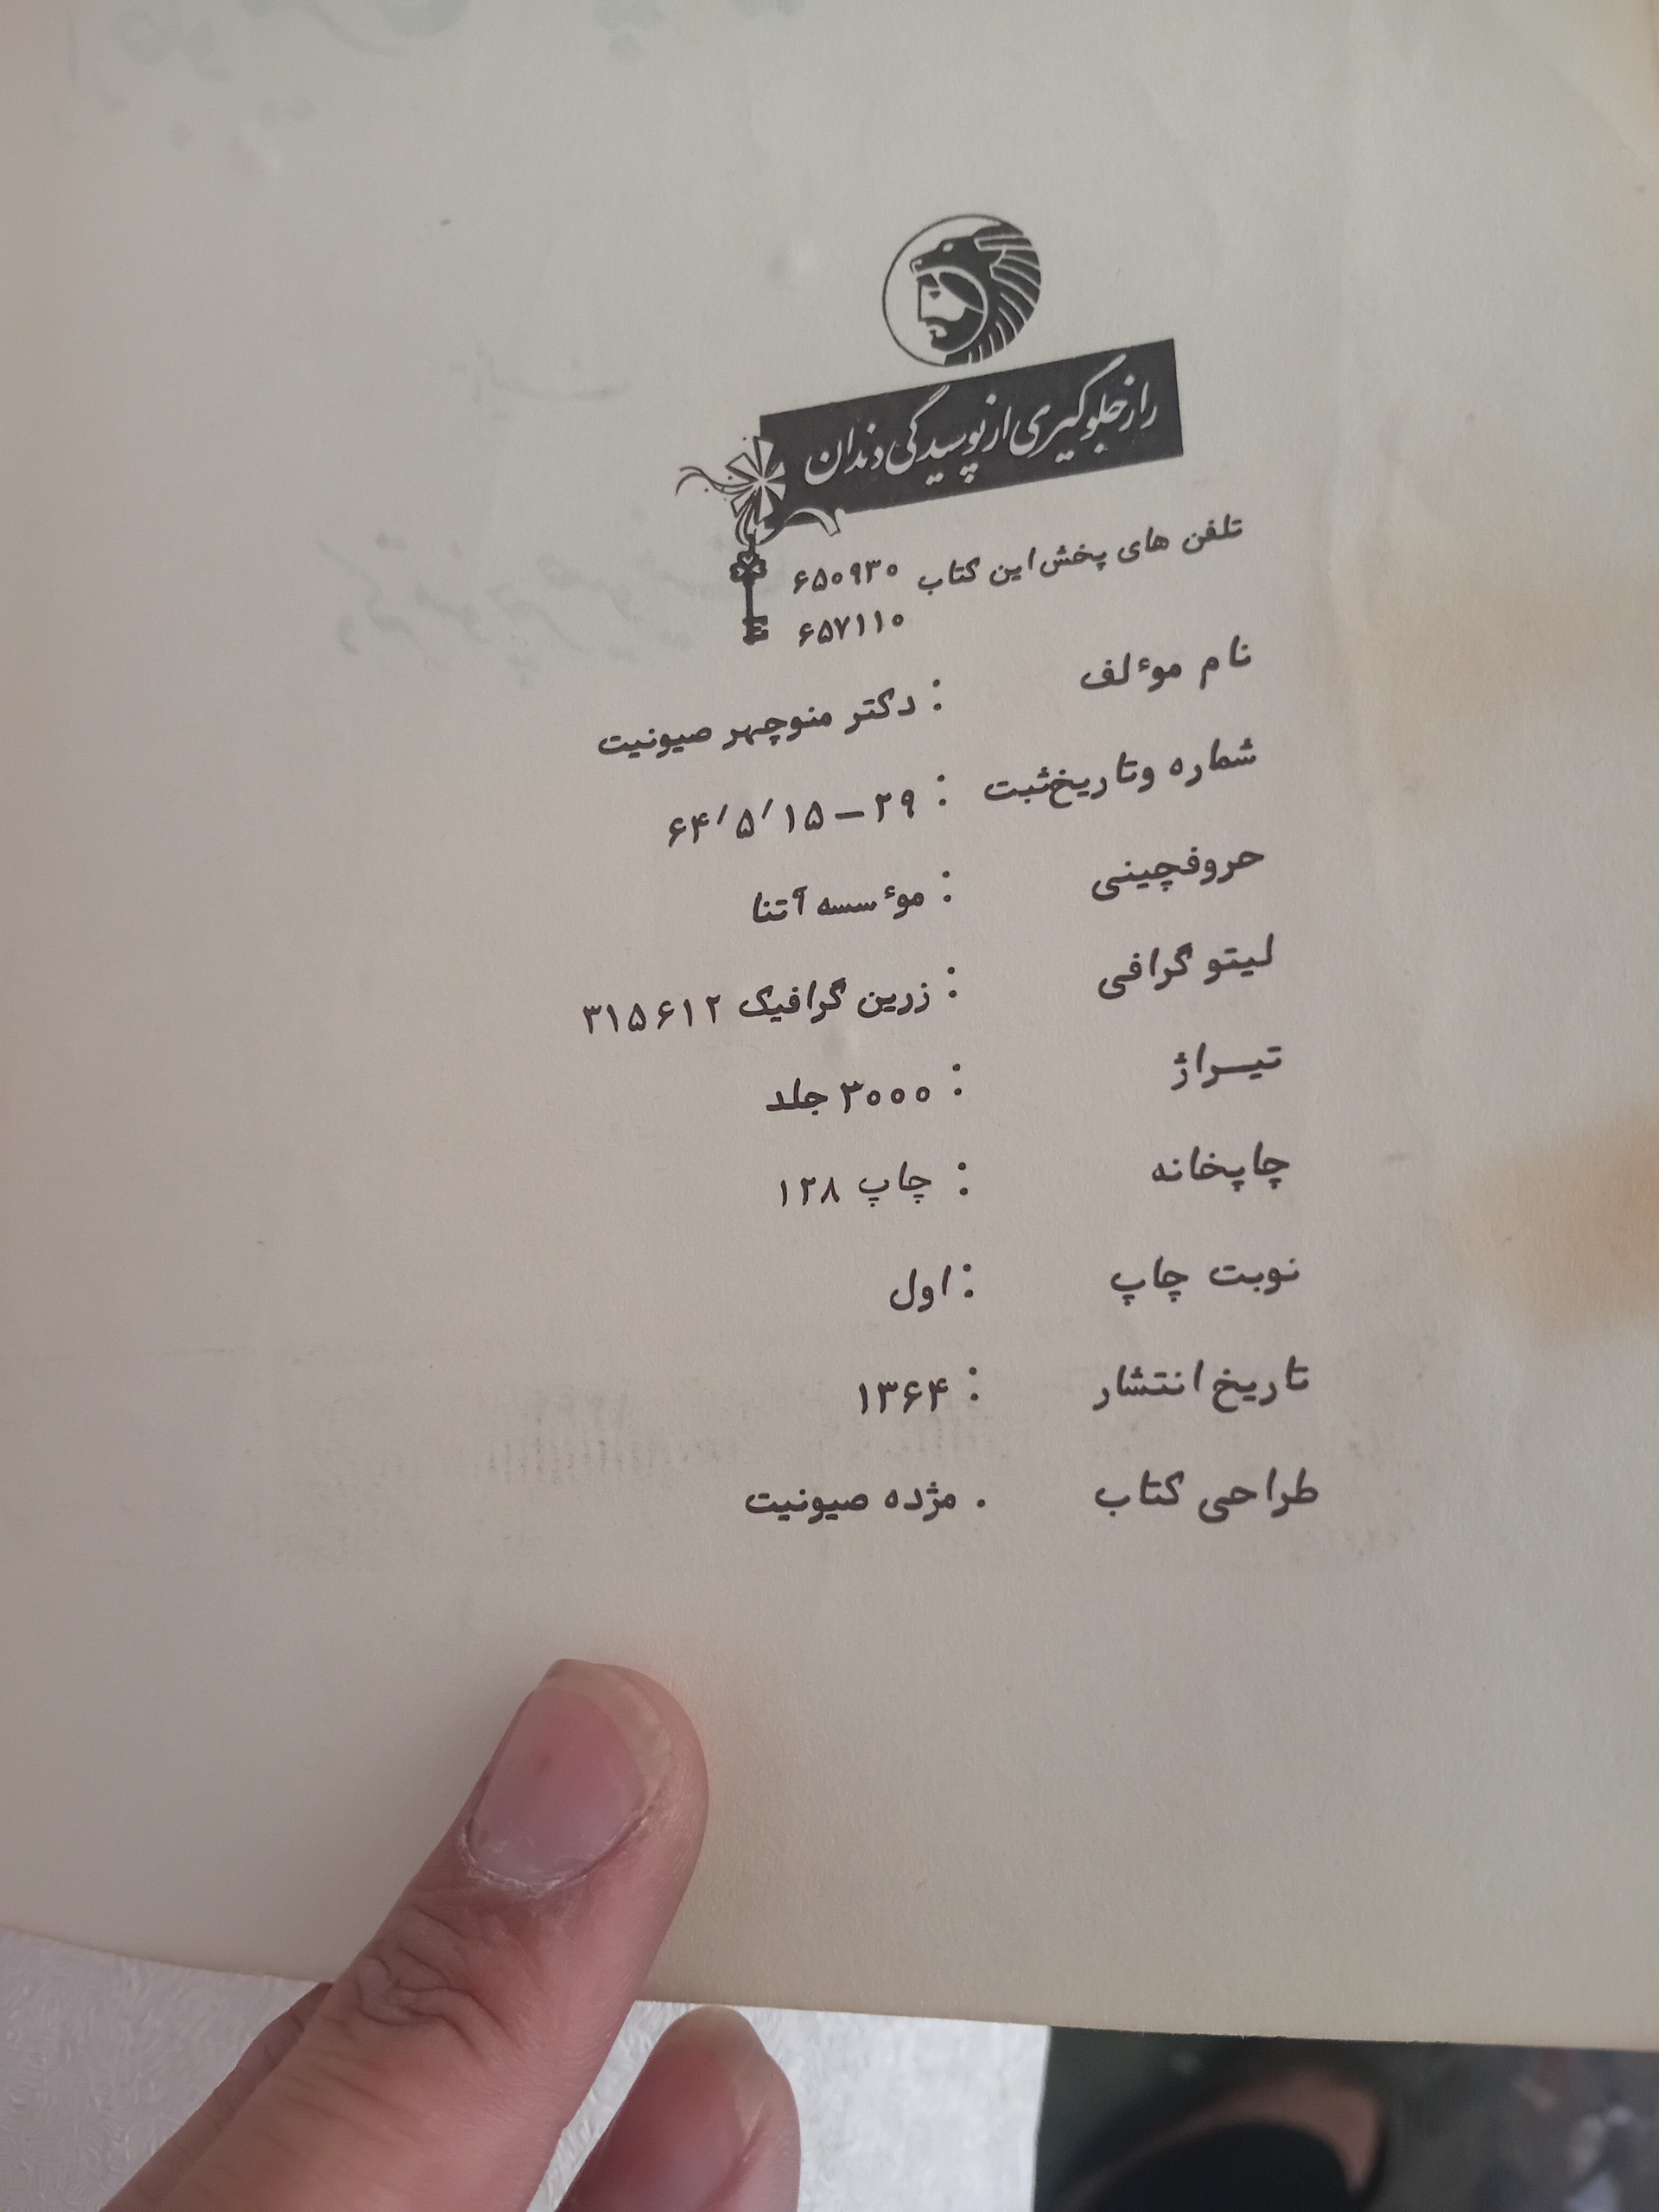 راز جلوگیری از پوسیدگی دندان
تلفن های پخش این کتاب ۶۵۰۹۳۰
۶۵۷۱۱۰
نام موٴلف : دکتر منوچهر صیونیت
شماره وتاریخ ثبت : ۲۹ – ۶۴/۵/۱۵
حروفچینی : موٴسسه آتنا
لیتو گرافی : زرین گرافیک ۳۱۵۶۱۲
تیراژ : ۳۰۰۰ جلد
چاپخانه : چاپ ۱۲۸
نوبت چاپ : اول
تاریخ انتشار : ۱۳۶۴
طراحی کتاب . مژده صیونیت